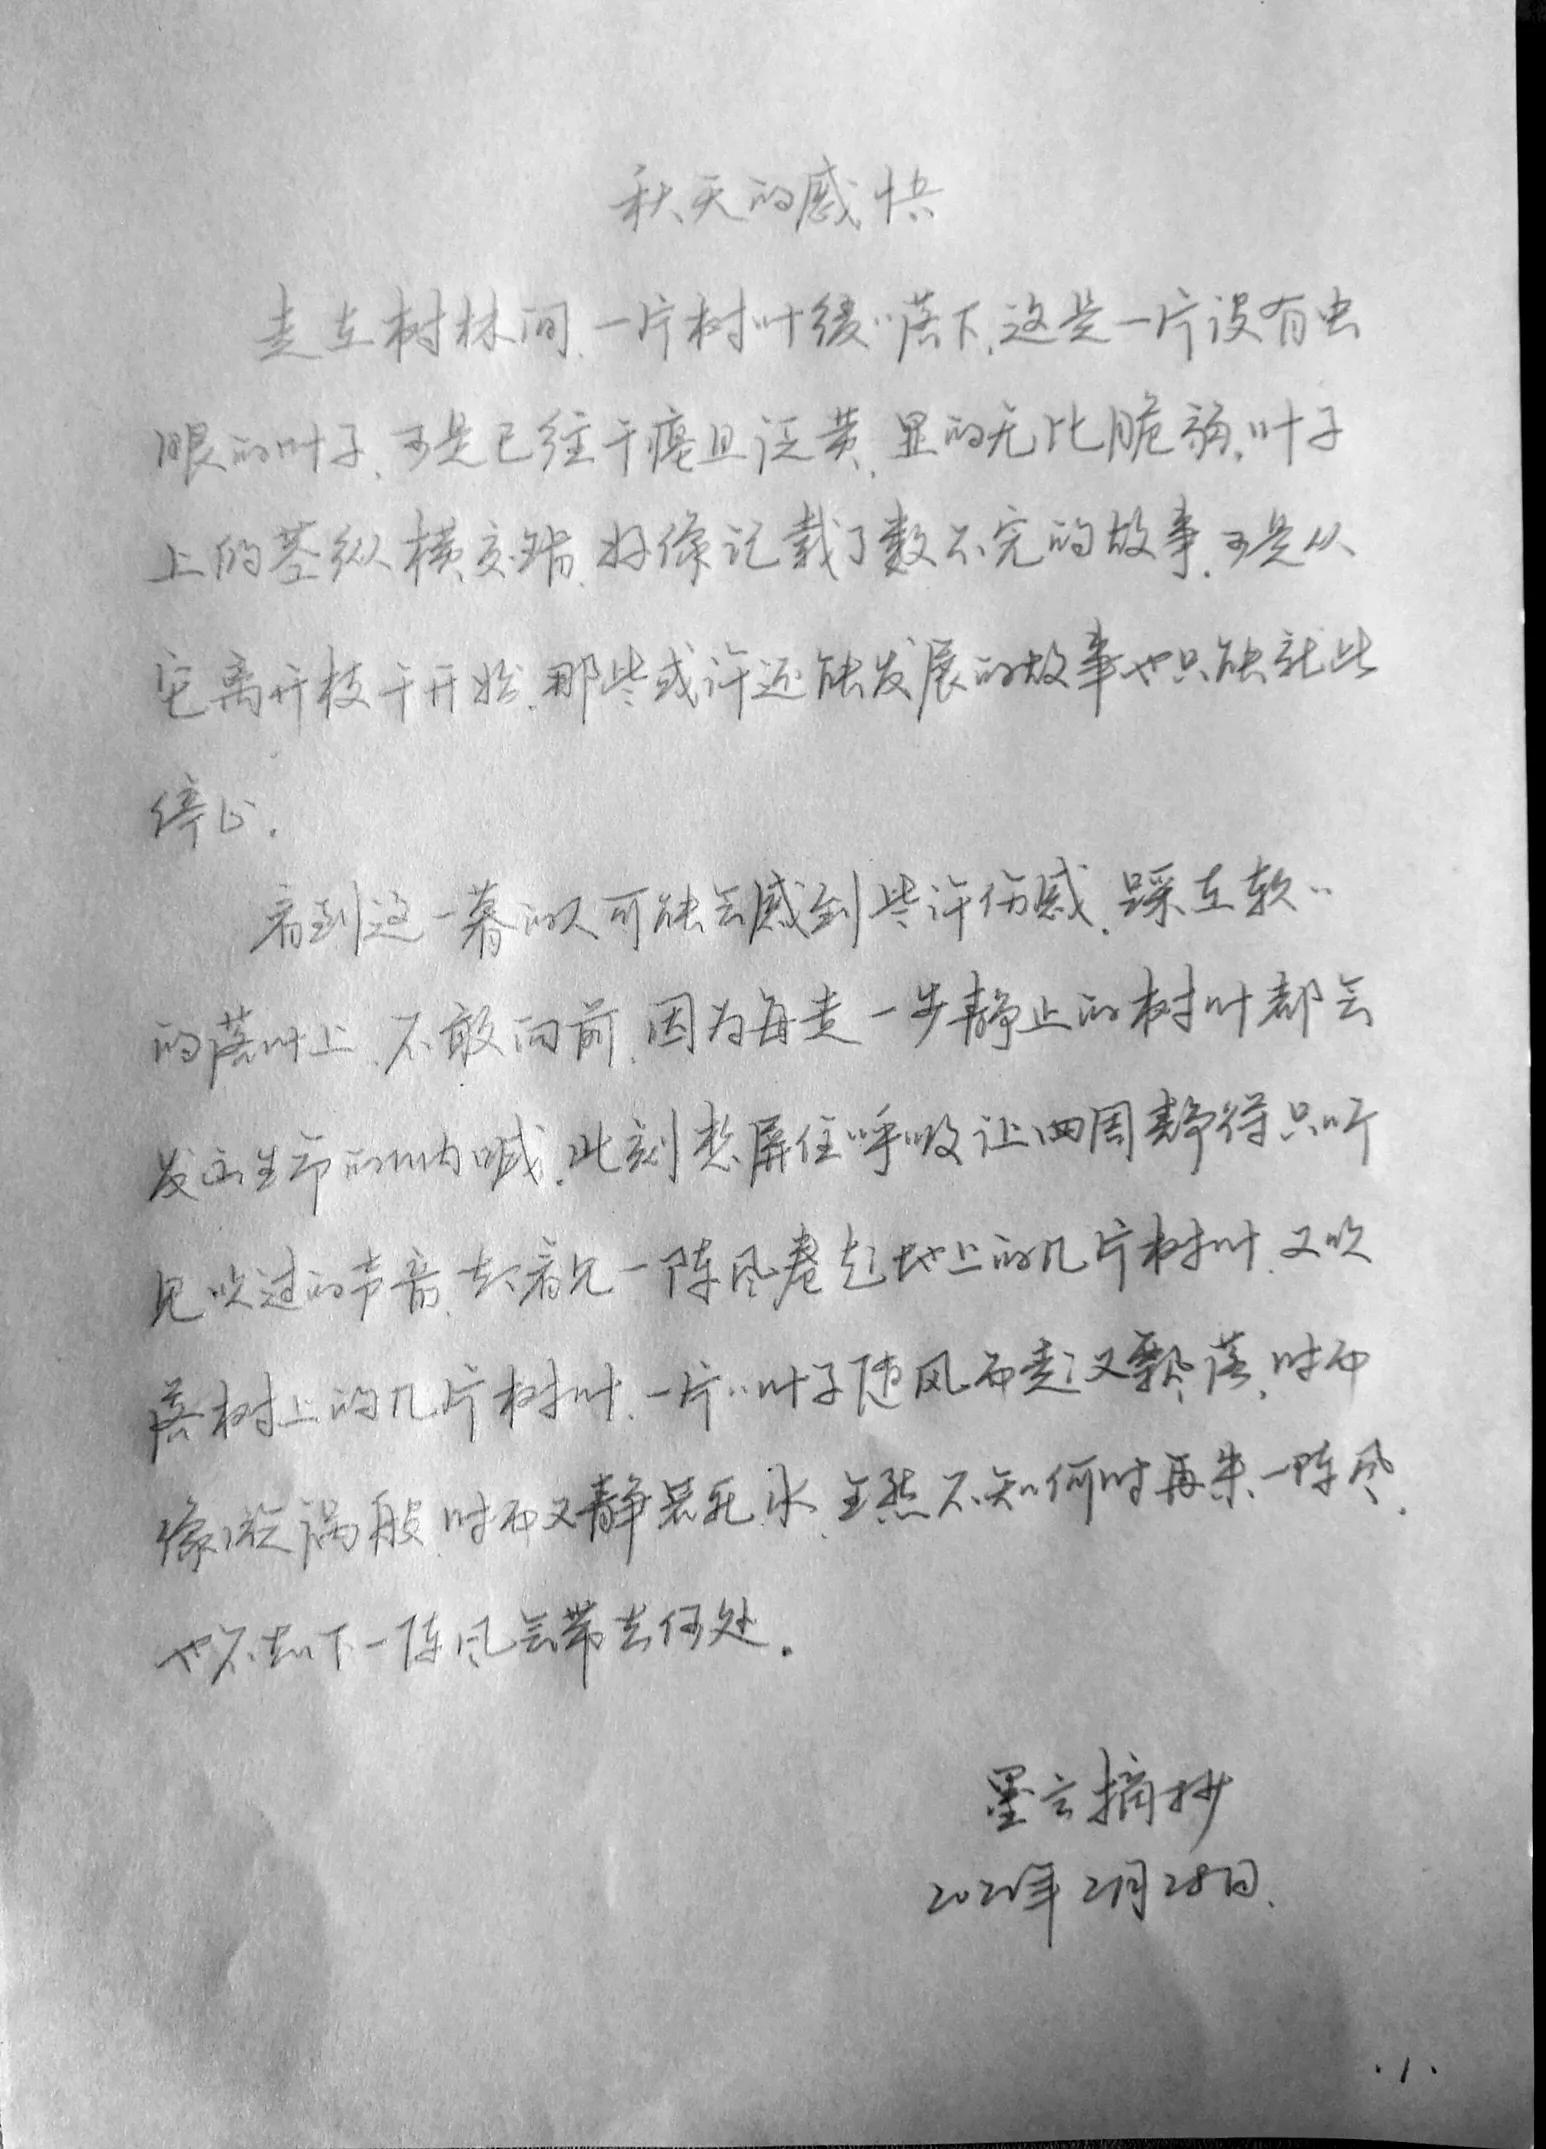 秋天的感怅
走在树林间,一片树叶缓〃落下,这是一片没有虫
眼的叶子,可是已经干瘪且泛黄,显的无比脆弱,叶子
上的茎纵横交错,好像记载了数不完的故事,可是从
它离开枝干开始,那些或许还能发展的故事也只能就此
停止.
看到这一幕的人可能会感到些许伤感,踩在软〃
的落叶上,不敢向前,因为每走一步静止的树叶都会
发出生命的呐喊,此刻想屏住呼吸让四周静得只听
见吹过的声音,却看见一阵风卷起地上的几片树叶,又吹
落树上的几片树叶,一片〃叶子随风而起又飘落,时而
像漩涡般,时而又静若死水,全然不知何时再来一阵风,
也不知下一阵风会带去何处.
墨言摘抄
2月28日.
.1.